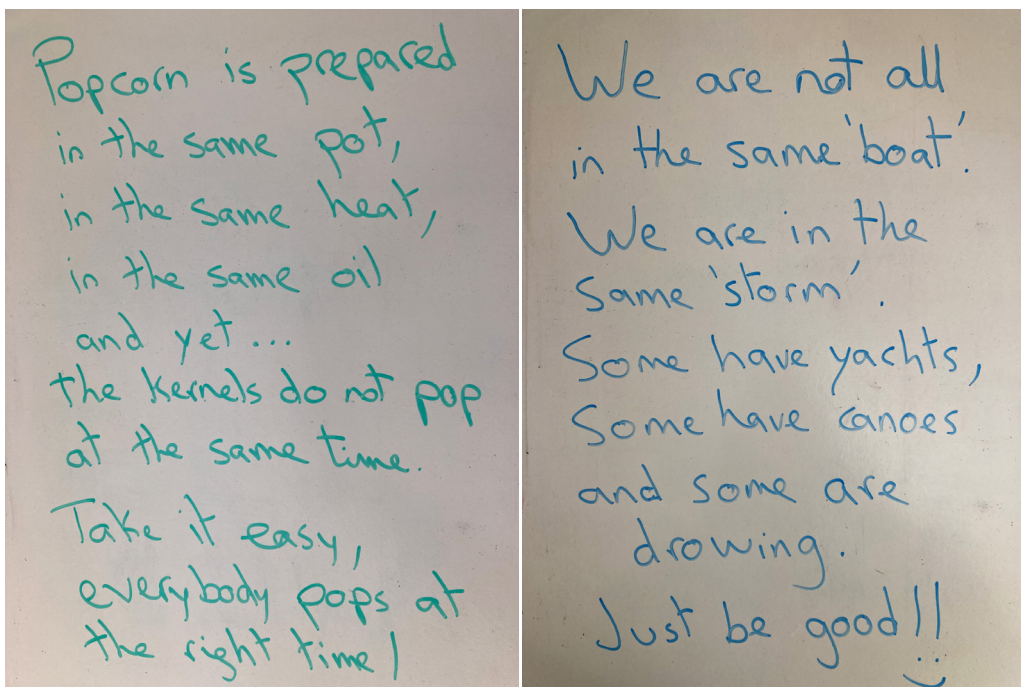 Popcorn is prepared
in the same pot,
in the same heat,
in the same oil
and yet...
the kernels do not pop
at the same time.
Take it easy,
everybody pops at
the right time!
We are not all
in the same 'boat'.
We are in the
same 'storm'.
Some have yachts,
Some have canoes
and some are
drowing.
Just be good!!